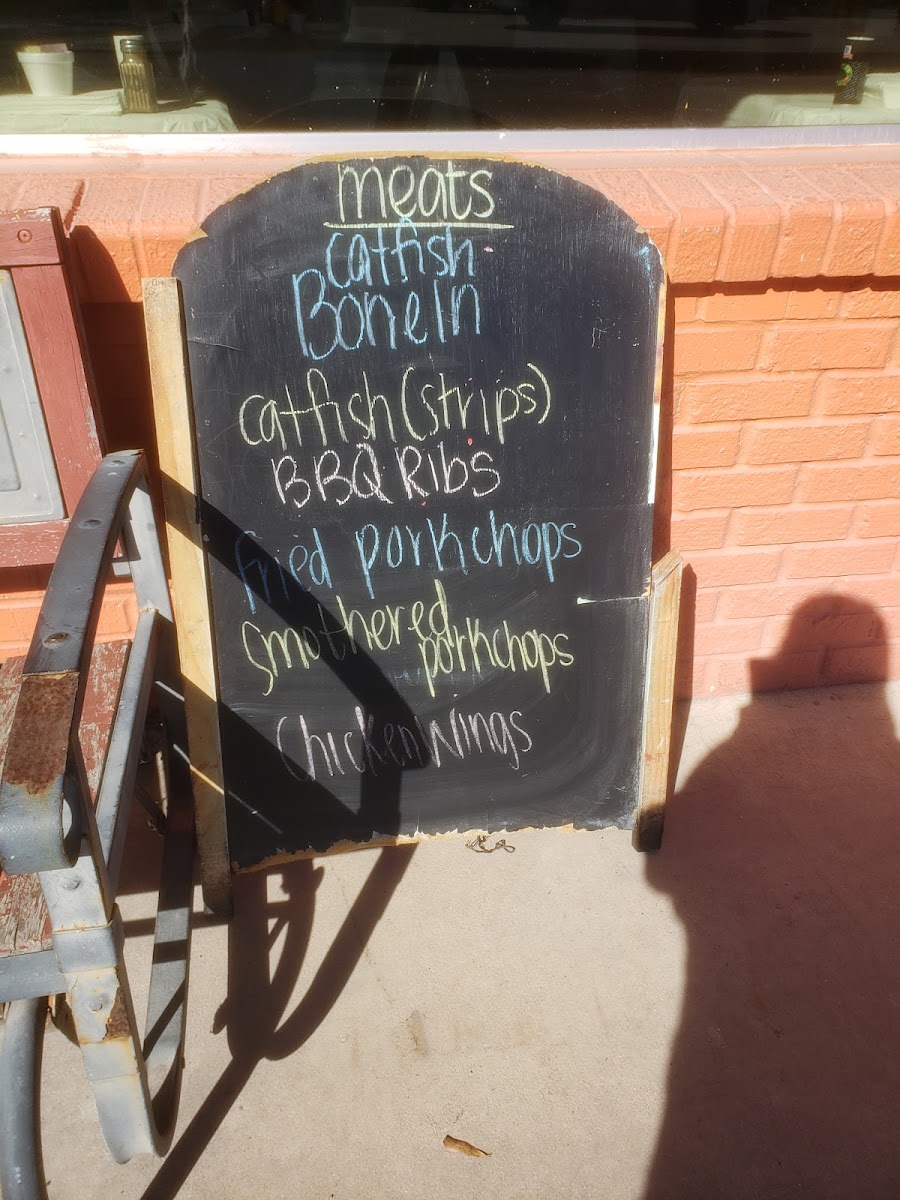 meats
Catfish
BoneIn
Catfish (strips)
BBQ Ribs
fried porkchops
smothered
porkchops
Chicken Wings